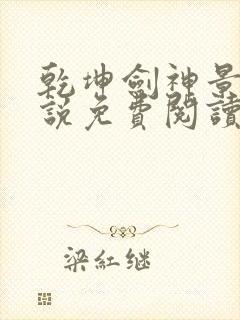 乾坤劍神景
說免費閱讀
梁紅继